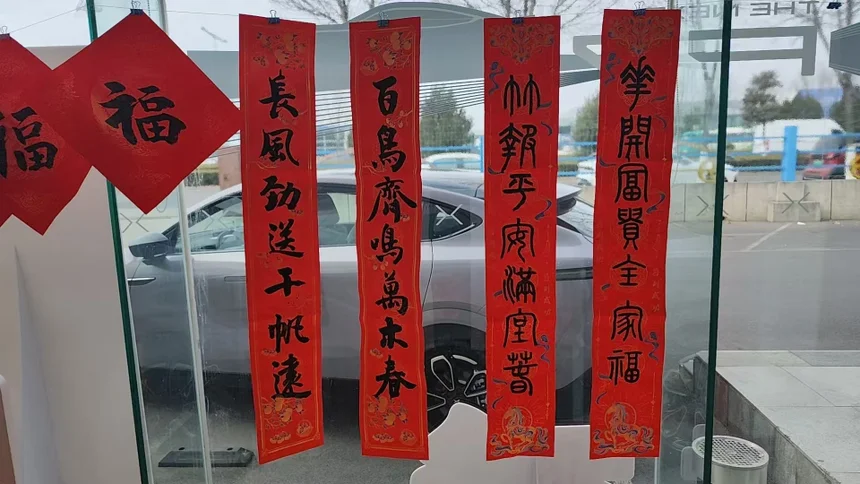 福
福
長風劲送千帆遠
百鳥齊鳴萬木春
竹報平安滿堂春
華開富貴全家福